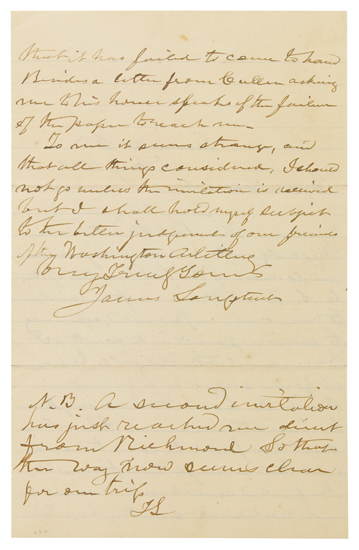 that it has failed to come to hand
Besides a letter from Cullen asking
me to his house speaks of the failure
of the paper to reach me.
To me it seems strange, and
that all things considered, I should
not go unless the invitation is received
but I shall hold myself subject
to the better judgement of our friends
of the Washington Artillery
Very Truly Yours
James Longstreet
N.B. A second invitation
has just reached me direct
from Richmond So that
the way now seems clear
for our trip
JL